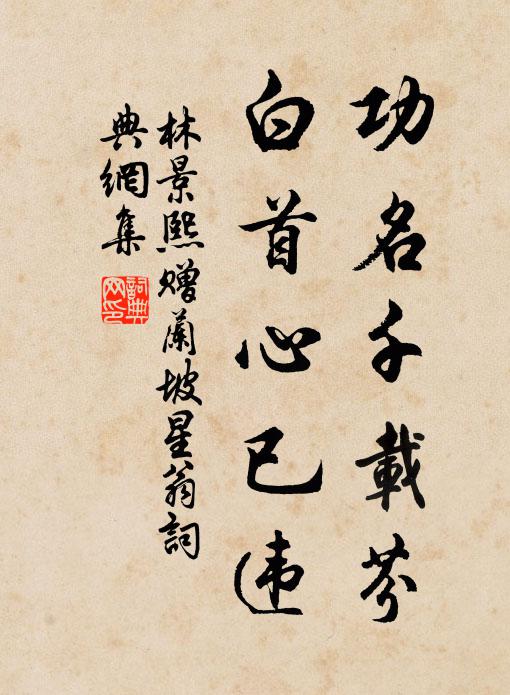 功名千載芬
白首心已违
林景熙赠蘭坡星翁詞
典網集
詞典
网印